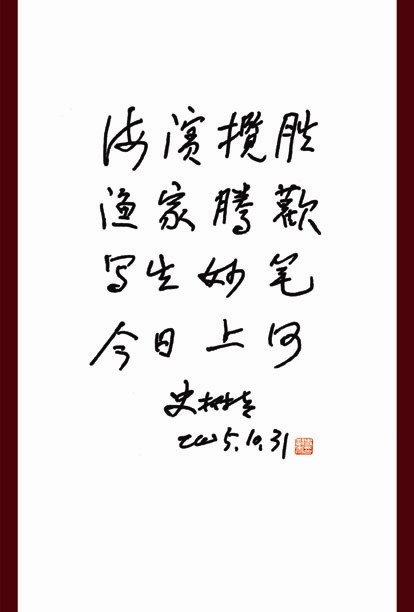 海濱攬胜
渔家騰歡
写生妙笔
今日上河
史树青
2005.10.31